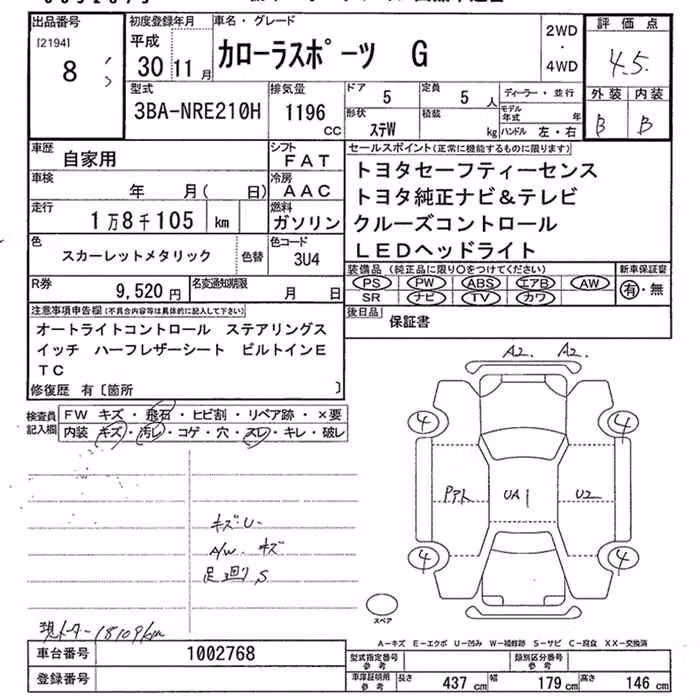 出品番号
[2194]
8
初度登録年月
平成
30 11月
車名・グレード
カローラスポーツ G
2WD
・
4WD
評価点
4.5
外装 内装
B B
型式
3BA-NRE210H
排気量
1196
cc
ドア
5
定員
5人
形状
ステW
積載
kg
ディーラー・並行
モデル年式 年
ハンドル 左・右
車歴
自家用
シフト
FAT
車検
年 月( 日)
冷房
AAC
走行
1万8千105 km
燃料
ガソリン
色
スカーレットメタリック
色替
色コード
3U4
R券
9,520円
名変通知期限
月 日
セールスポイント(正常に機能するものに限ります)
トヨタセーフティーセンス
トヨタ純正ナビ&テレビ
クルーズコントロール
LEDヘッドライト
装備品 (純正品に限り○をつけてください)
PS PW ABS エアB AW
SR ナビ TV カワ
新車保証書
有・無
後日品
保証書
注意事項申告欄(不具合内容等は具体的に記入して下さい)
オートライトコントロール ステアリングス
イッチ ハーフレザーシート ビルトインE
TC
修復歴 有〔箇所 〕
検査員
記入欄
FW キズ・飛石・ヒビ割・リペア跡・×要
内装 キズ・汚レ・コゲ・穴・スレ・キレ・破レ
キズ・U-
A/W. キズ
足廻りS
18109km
A2. A2.
4 4
UA1 U2
4 4
スペア
A-キズ E-エクボ U-凹み W-補修跡 S-サビ C-腐食 XX-交換済
車台番号 1002768
登録番号
型式指定番号
参考
類別区分番号
参考
車庫証明用
参考
長さ 437cm 幅 179cm 高さ 146cm